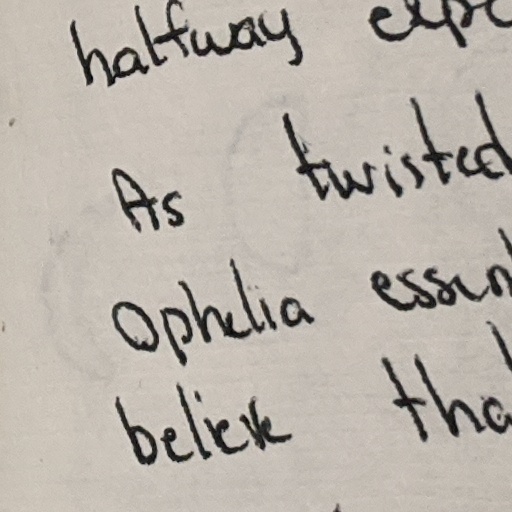 halfway expe
As twisted
Ophelia essen
believe tha